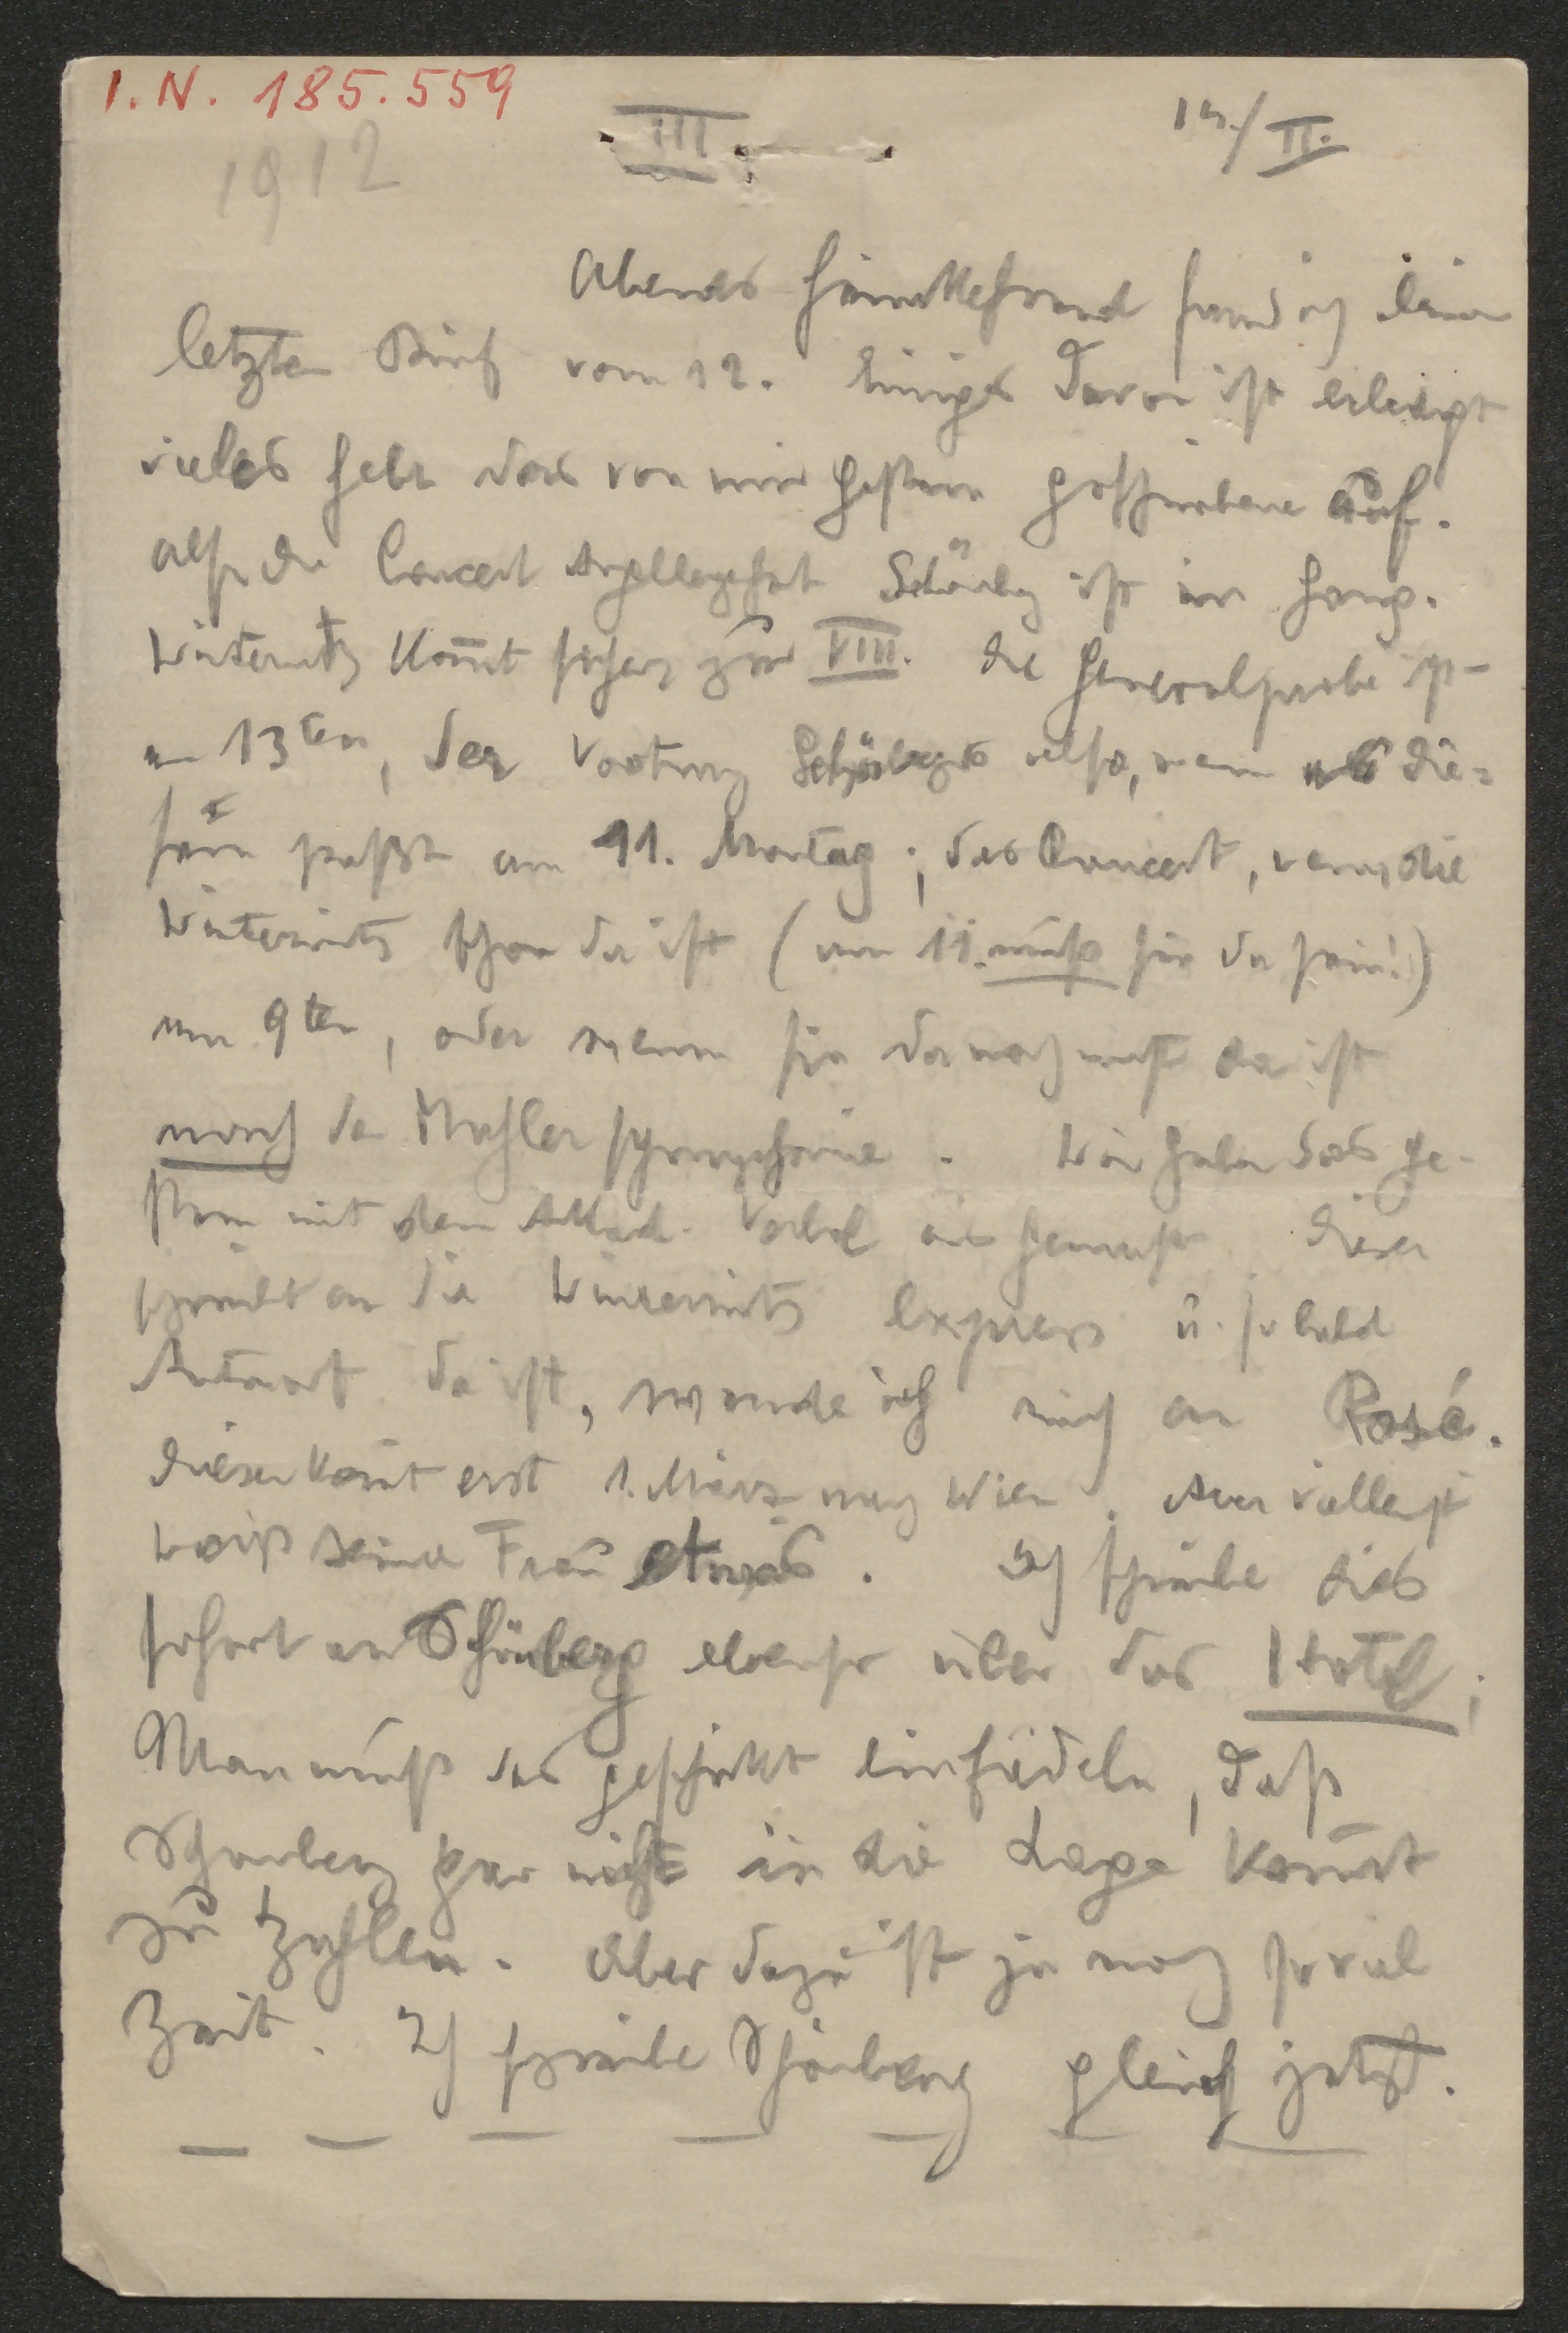 I.N. 185.559
1912
III
14./II.
Abends heimkehrend fand ich deinen
letzten Brief vom 12. Einiges davon ist erledigt
vieles hebt das von mir gestern geschriebene auf.
Also die Concertangelegenheit Schönberg ist im Gang.
Winternitz kom̄t sicher zur VIII. Die Generalprobe ist
am 13ten, der Vortrag Schönbergs also, wenn es die-
sem paßt am 11. Montag; das Concert, wenn die
Winternitz schon da ist (am 11. muß sie da sein!)
am 9ten, oder wenn sie da noch nicht da ist
nach der Mahlersymphonie. Wir haben das ge-
stern mit dem Akad. Verbd ausgemacht. Dieser
schreibt an die Winternitz express u. sobald
Antwort da ist, wende ich mich an Rosé.
Dieser kom̄t erst 1. März nach Wien. Aber vielleicht
weiß seine Frau etwas. Ich schreibe dies
sofort an Schönberg ebenso über das Hotel;
Man muß das geschickt einfädeln, daß
Schönberg gar nicht in die Lage kom̄t
zu zahlen. Aber dazu ist ja noch so viel
Zeit. Ich schreibe Schönberg gleich jetzt.